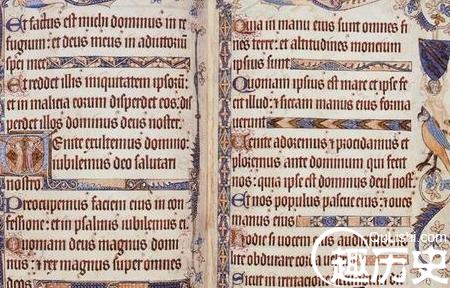 Et factus est michi dominus in re
fugium: et deus meus in adiutoriū
spei mee
Et reddet illis iniquitatem ipsorū:
et in malicia eorum disperdet eos: dis
perdet illos dominus deus noster.
Venite exultemus domino:
iubilemus deo salutari
nostro
Preocupemus faciem eius in con
fessione: et in psalmis iubilemus ei
Quoniam deus magnus domi
nus: ⁊ rex magnus super omnes
deos
Quia in manu eius sunt omnes fi
nes terre: et altitudines moncium
ipsius sunt
Quoniam ipsius est mare et ipse fe
cit illud: ⁊ siccam manus eius forma
uerunt
Venite adoremus ⁊ procidamus et
ploremus ante dominum qui fecit
nos: quia ipse est dominus deus nost
Et nos populus pascue eius: ⁊ oues
manus eius
Hodie si uocem eius
lite obdurare cor
Sicut in irritatione
Qulishi.com
趣历史